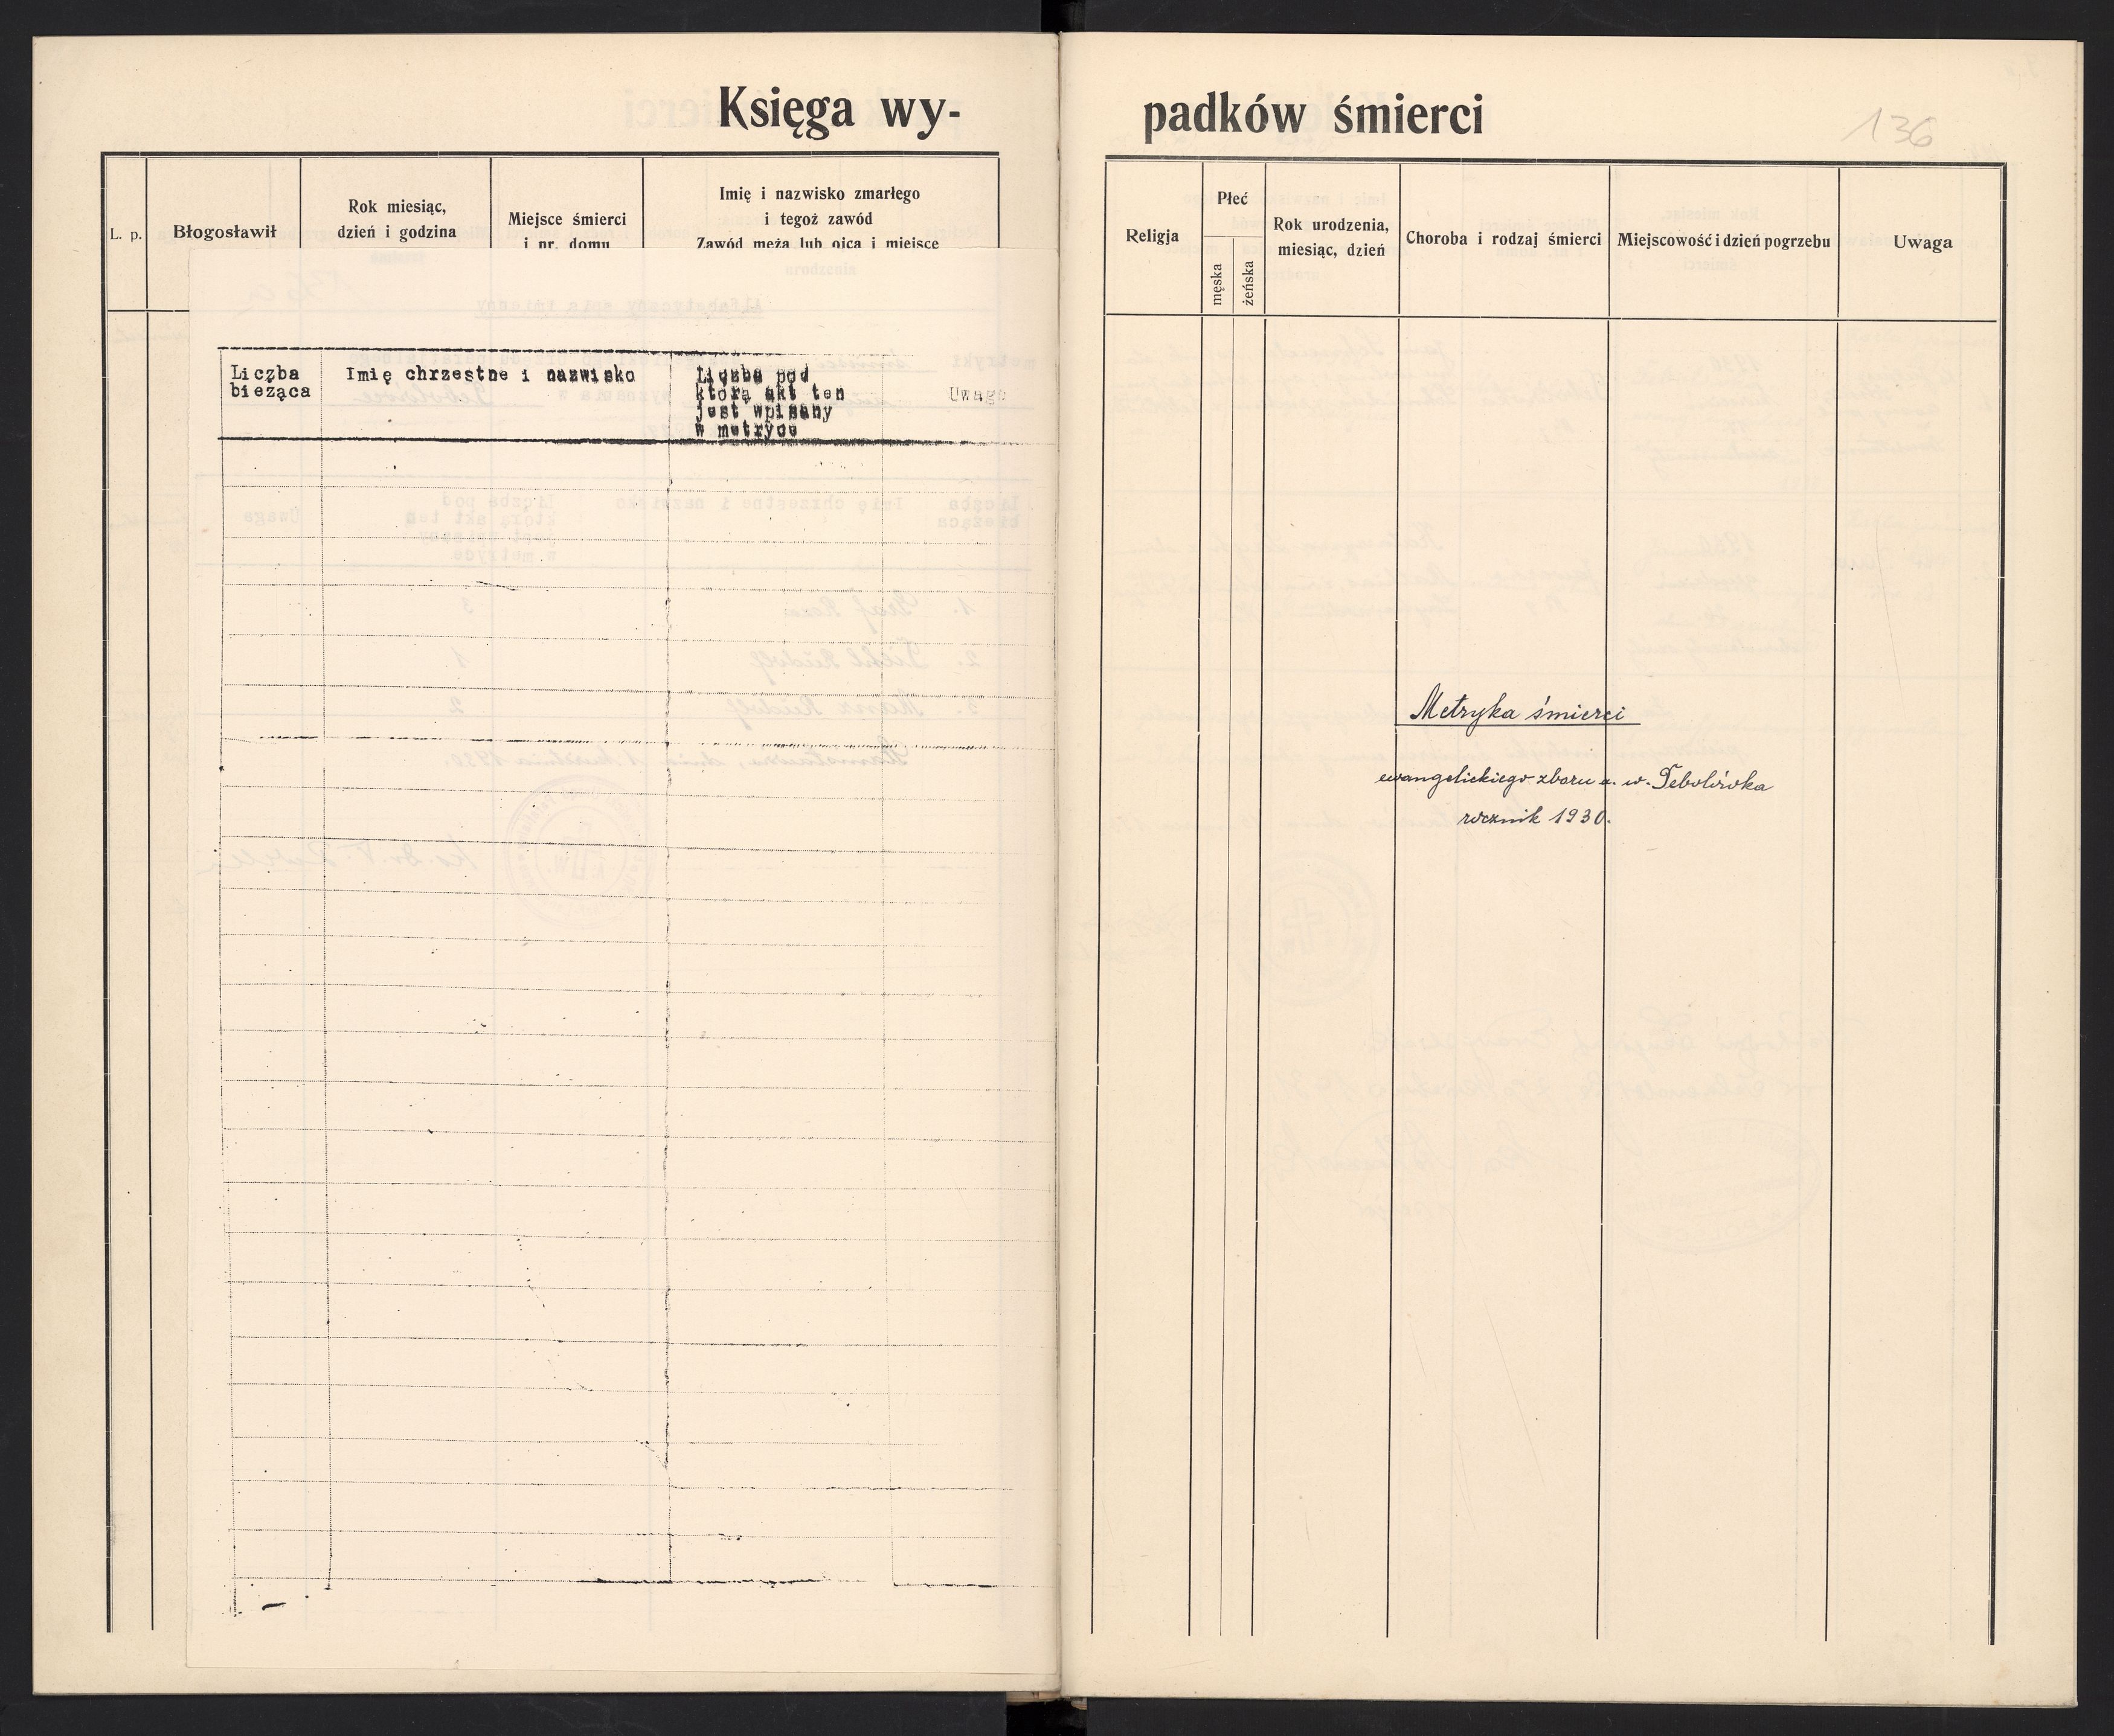 Księga wy-
L. p.
Błogosławił
Rok miesiąc,
dzień i godzina
Miejsce śmierci
i nr. domu
Imię i nazwisko zmarłego
i tegoż zawód
Zawód męża lub ojca i miejsce
Liczba
bieżąca
Imię chrzestne i nazwisko
Liczba pod
którą akt ten
jest wpisany
w metryce
Uwaga
padków śmierci
136
Religja
Płeć
męska
żeńska
Rok urodzenia,
miesiąc, dzień
Choroba i rodzaj śmierci
Miejscowość i dzień pogrzebu
Uwaga
Metryka śmierci
ewangelickiego zboru a. w. Debolówka
rocznik 1930.